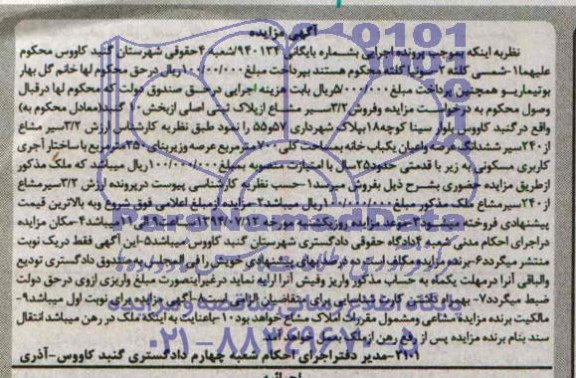 آگهی مزایده
نظر به اینکه بموجب پرونده اجرایی بشماره بایگانی ۹۴۰۱۳۴/شعبه ۴حقوقی شهرستان گنبد کاووس محکوم
علیهما۱-شمسی کلته ۲-سونا کلته محکوم هستند بپرداخت مبلغ ۱۰۰/۰۰۰/۰۰۰ریال درحق محکوم لها خانم گل بهار
بوتیمارپو همچنین پرداخت مبلغ ۵/۰۰۰/۰۰۰ریال بابت هزینه اجرایی درحق صندوق دولت که محکوم لها درقبال
وصول محکوم به درخواست مزایده وفروش۳/۲سیر مشاع ازپلاک ثبتی اصلی ازبخش۱۰گنبد(معادل محکوم به)
واقع درگنبد کاووس بلوار سینا کوچه۱۸پلاک شهرداری ۵۷و۵۵ را نمود طبق نظریه کارشناس ارزش ۳/۲سیر مشاع
از۲۴۰سیر ششدانگ عرصه واعیان یکباب خانه بمساحت کلی ۷۰۰مترمربع عرصه وزیربنای۲۵۰مترمربع با ساختار آجری
کاربری مسکونی به زیر با قدمتی حدود۲۵سال با امتیازت منصوبه بمبلغ۱۰۰/۰۰۰/۰۰۰ریال میباشد که ملک مذکور
ازطریق مزایده حضوری بشرح ذیل بفروش میرسد۱-حسب نظریه کارشناسی پیوست درپرونده ارزش ۳/۲سیرمشاع
از۲۴۰سیرمشاع ملک مذکور مبلغ ۱۰۰/۰۰۰/۰۰۰ریال میباشد۲-مزایده ازمبلغ اعلامی فوق شروع وبه بالاترین قیمت
پیشنهادی فروخته میشود۳-موعد مزایده روزیکشنبه مورخه ۱۳۹۴/۰۷/۱۲ ساعت۹الی۱۱میباشد۴-مکان مزایده
دراجرای احکام مدنی شعبه ۴دادگاه حقوقی دادگستری شهرستان گنبد کاووس میباشد۵-این آگهی فقط دریک نوبت
منتشر میگردد۶-برنده مزایده مکلف است ده درصد بهای پیشنهادی خویش را فی المجلس به صندوق دادگستری تودیع
والباقی آنرا درمهلت یکماه به حساب مذکور واریز وفیش آنرا ارایه نماید درغیراینصورت مبلغ واریزی ازوی درحق دولت
ضبط میگردد۷-بهمراه داشتن کارت شناسایی برای متقاضیان الزامی است۸-آگهی مزایده برای نوبت اول میباشد۹-
مالکیت برنده مزایده مشاعی ومشمول مقررات املاک مشاع خواهد بود۱۰-باعنایت به اینکه ملک در رهن میباشد انتقال
سند بنام برنده مزایده پس از رفع رهن ازملک بعمل خواهد آمد
۲۱۰۱-مدیر دفتراجرای احکام شعبه چهارم دادگستری گنبد کاووس-آذری
ParsNamadData
۰۲۱-۸۸۳۴۹۶۷۰-۵